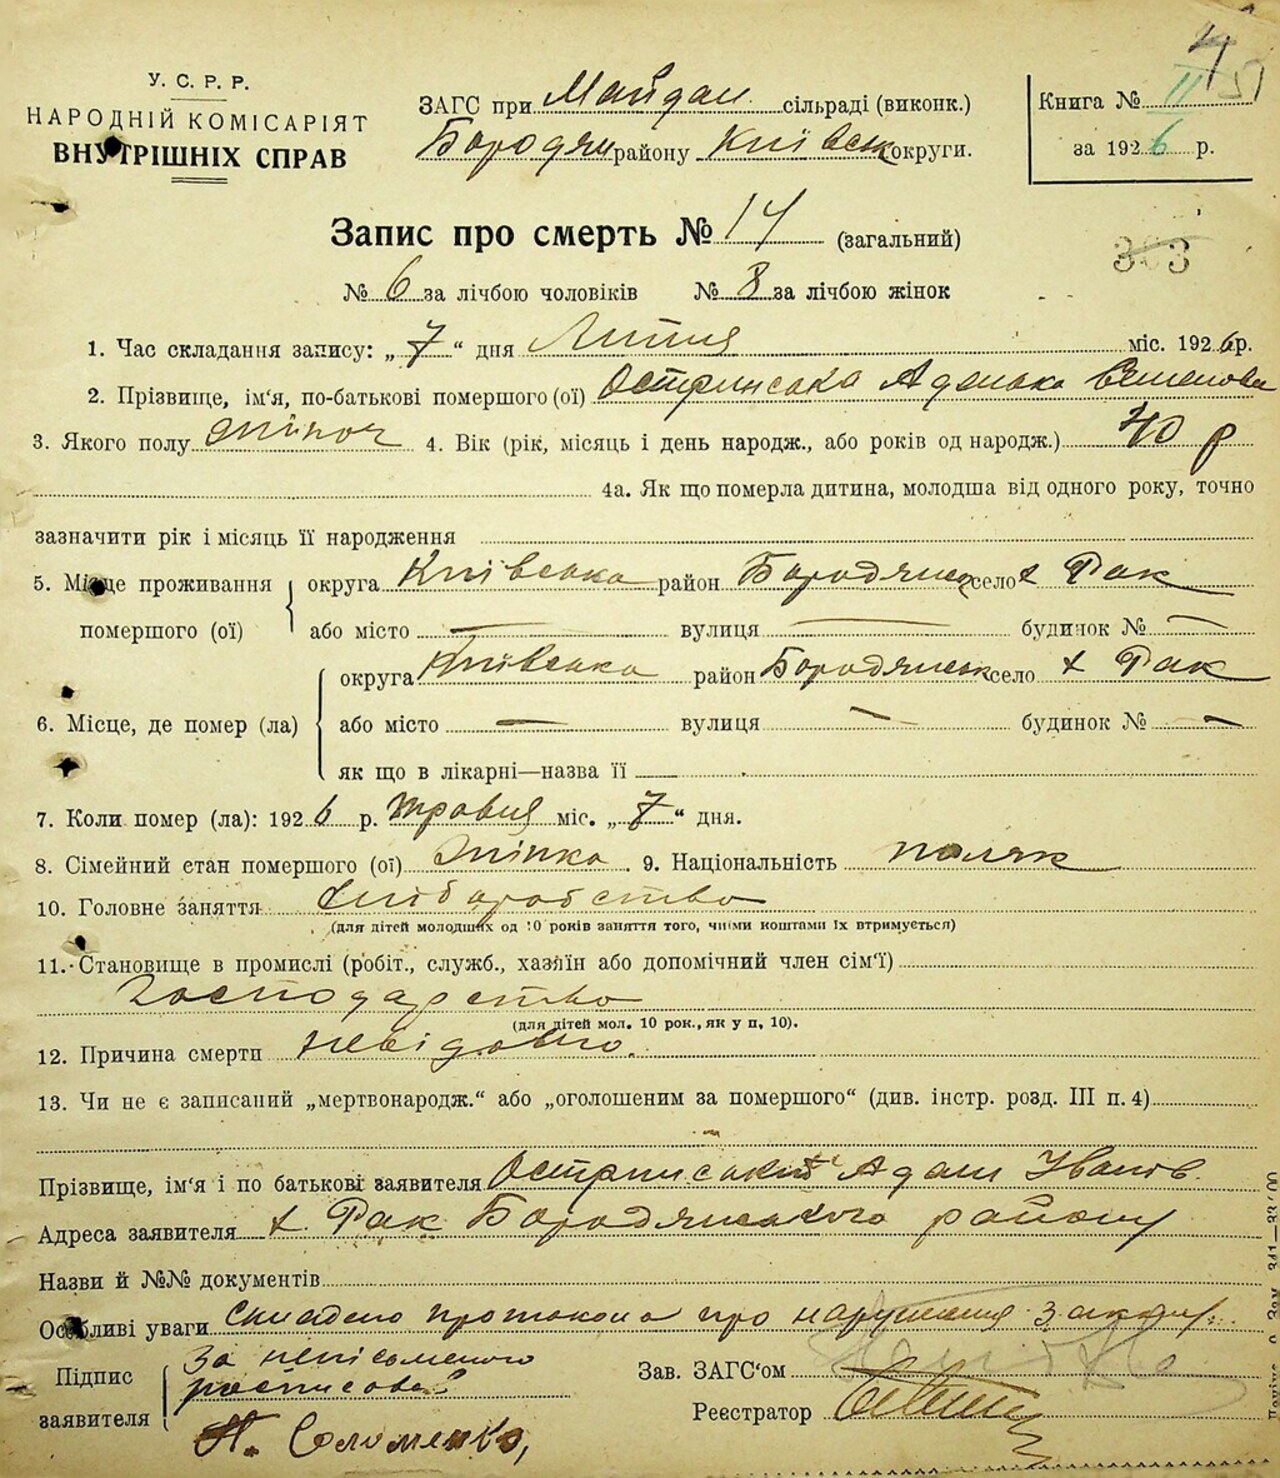 У. С. Р. Р.
НАРОДНІЙ КОМІСАРІЯТ
ВНУТРІШНІХ СПРАВ
ЗАГС при Майдан сільраді (виконк.)
Бородян району Київськ округи.
Книга № II
за 1926 р.
Запис про смерть № 14 (загальний)
303
№ 6 за лічбою чоловіків № 8 за лічбою жінок
1. Час складання запису: „ 7 “ дня Липня міс. 1926 р.
2. Прізвище, ім‘я, по-батькові помершого (ої) Остринська Аделька Семенова
3. Якого полу жіноч 4. Вік (рік, місяць і день народж., або років од народж.) 40 р
4а. Як що померла дитина, молодша від одного року, точно
зазначити рік і місяць її народження
5. Місце проживання помершого (ої) округа Київська район Бородянськ село х Рак
або місто — вулиця — будинок № —
6. Місце, де помер (ла) округа Київська район Бородянськ село х Рак
або місто — вулиця — будинок № —
як що в лікарні—назва її
7. Коли помер (ла): 1926 р. травня міс. „ 7 “ дня.
8. Сімейний стан помершого (ої) жінка 9. Національність поляк
10. Головне заняття хліборобство
(для дітей молодших од 10 років заняття того, чиїми коштами їх втримується)
11. Становище в промислі (робіт., служб., хазяїн або допомічний член сім‘ї)
господарство
(для дітей мол. 10 рок., як у п. 10).
12. Причина смерти невідомо.
13. Чи не є записаний „мертвонародж.“ або „оголошеним за помершого“ (див. інстр. розд. III п. 4)
Прізвище, ім‘я і по батькові заявителя Остринський Адам Іванів.
Адреса заявителя х. Рак Бородянського району
Назви й №№ документів
Особливі уваги Складено протокола про нарушення закону.
Підпис заявителя за неписьменого
росписовав
П. Соломенко,
Зав. ЗАГС‘ом
Реєстратор